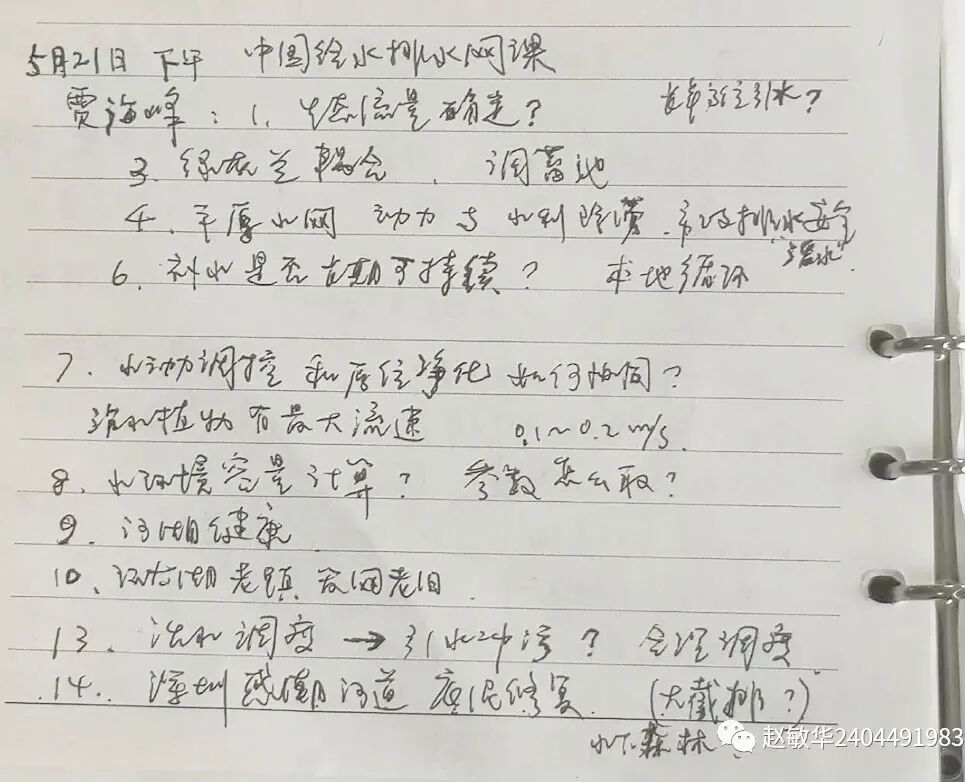 5月21日 下午 中国给水排水网课
贾海峰：1. 生态流量确定？ 引水？
3. 绿灰兰耦合. 调蓄池
4. 平原水网 动力与水利 市政排水安全
6. 补水是否长期可持续？ 本地循环
7. 水动力调控和原位净化如何协同？
沉水植物有最大流速 0.1~0.2m/s.
8. 水环境容量计算？ 参数怎么取？
9. 河湖健康
10、环太湖老镇 管网老旧.
13. 活水调度 → 引水冲污？ 合理调度
14. 深圳感潮河道 底泥修复. (大截排?)
水下森林
赵敏华2404491983